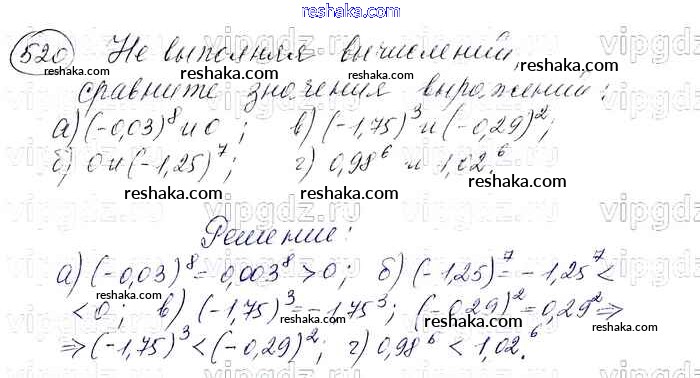 reshaka.com
520 Не выполняя вычислений,
reshaka.com reshaka.com
сравните значения выражений:
а) (-0,03)⁸ и 0; в) (-1,75)³ и (-0,29)²;
reshaka.com reshaka.com
б) 0 и (-1,25)⁷; г) 0,98⁶ и 1,02.⁶
reshaka.com reshaka.com
vipgdz.ru vipgdz.ru vipgdz.ru
Решение:
reshaka.com reshaka.com
а) (-0,03)⁸ = 0,003⁸ > 0; б) (-1,25)⁷ = -1,25⁷ <
reshaka.com reshaka.com
< 0; в) (-1,75)³ = -1,75³; (-0,29)² = 0,29² ⇒
reshaka.com reshaka.com
⇒ (-1,75)³ < (-0,29)²; г) 0,98⁶ < 1,02.⁶
reshaka.com